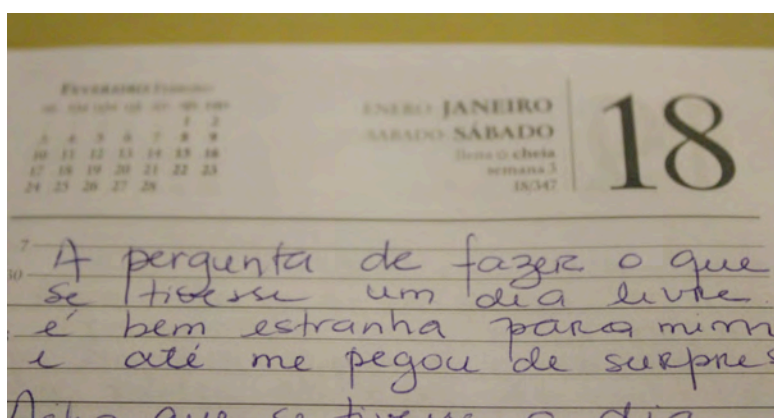 FEVEREIRO Febrero
1 2
3 4 5 6 7 8 9
10 11 12 13 14 15 16
17 18 19 20 21 22 23
24 25 26 27 28
ENERO JANEIRO
SABADO SÁBADO
llena cheia
semana 3
18/347
18
7
30
A pergunta de fazer o que
se tivesse um dia livre
é bem estranha para mim
e até me pegou de surpres
que se tivesse o dia